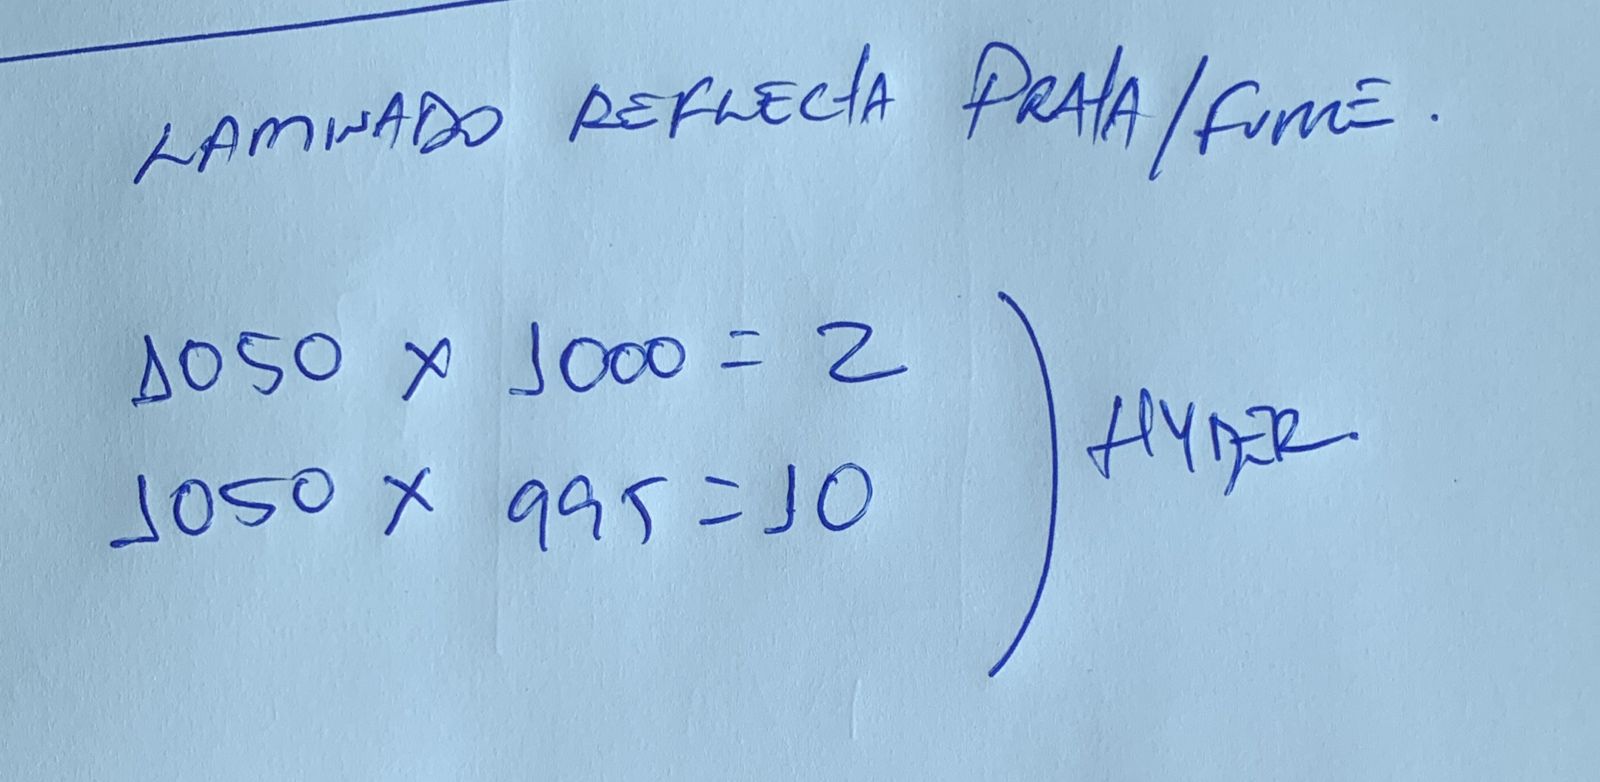 LAMINADO REFLECTA PRATA/FUMÊ.
1050 x 1000 = 2
1050 x 995 = 10
HYDER